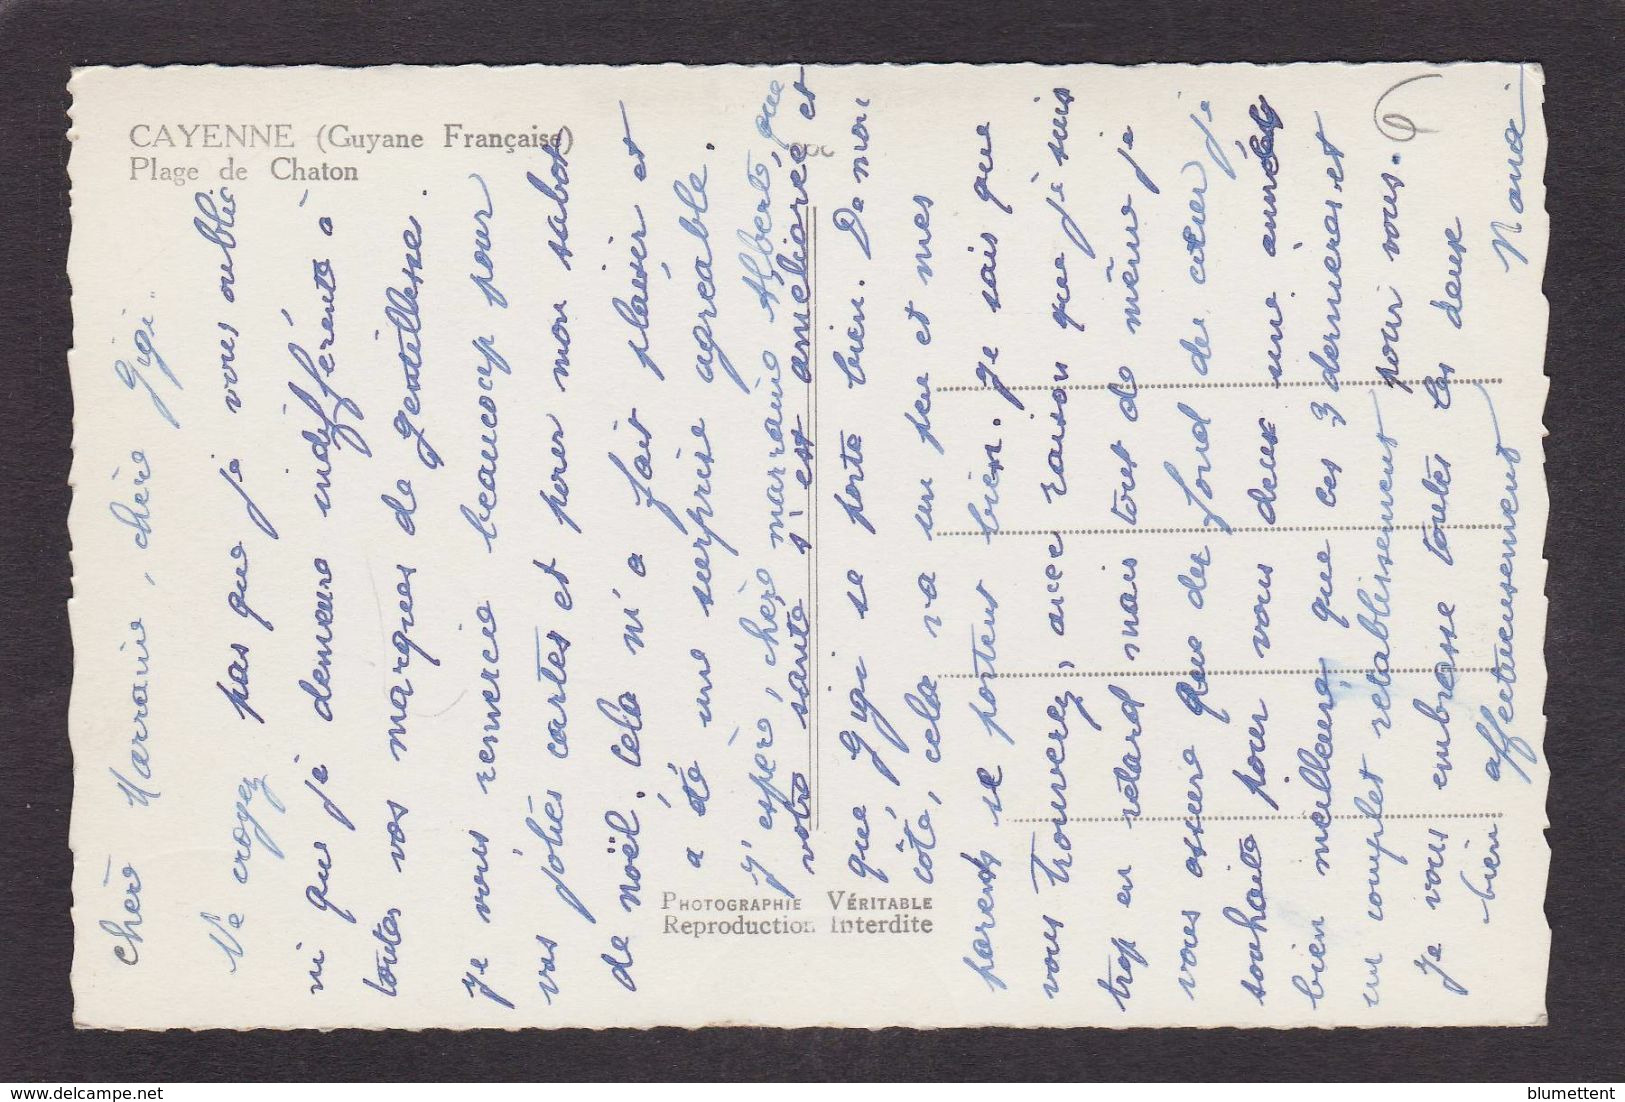 CAYENNE (Guyane Française)
Plage de Chaton
PHOTOGRAPHIE VÉRITABLE
Reproduction Interdite
chère Marraine, chère Gigi.
Ne croyez pas que je vous oublie
ni que je demeure indifférente à
toutes vos marques de gentillesse.
je vous remercie beaucoup pour
vos jolies cartes et pour mon sabot
de noël. Cela m'a fait plaisir et
a été une surprise agréable.
J'espère, chère marraine Alberte que
votre santé s'est améliorée et
que Gigi se porte bien. De mon
côté, cela va un peu et mes
parents se portent bien. je sais que
vous trouverez, avec raison que je suis
trop en retard mais tout de même je
vous assure que du fond du cœur je
souhaite pour vous deux une année
bien meilleure que ces 3 dernières et
un complet rétablissement pour vous.
je vous embrasse toutes les deux
bien affectueusement
6
delcampe.net
blumettent